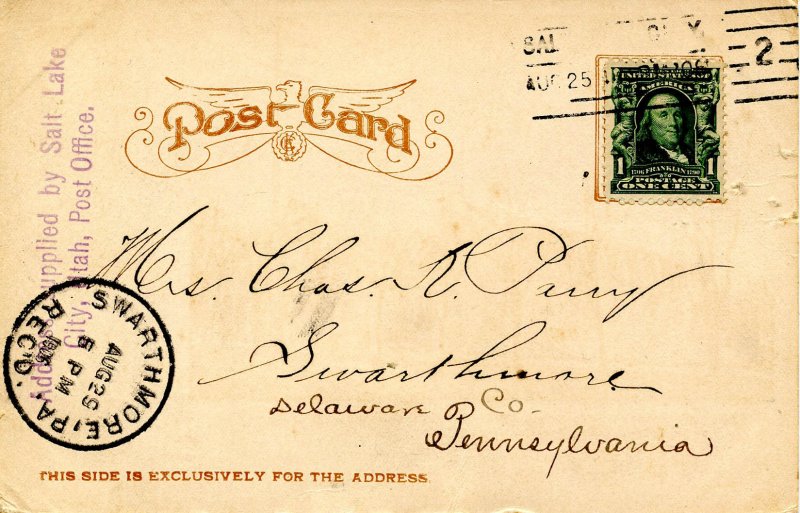 Address supplied by Salt Lake
City, Utah, Post Office.
Post Card
SAL CITY
AUG 25
2
UNITED STATES OF
AMERICA
1 1
1706 FRANKLIN 1790
POSTAGE
ONE CENT
Mrs. Chas. R. Parry
Swarthmore
Delaware Co-
Pennsylvania
SWARTHMORE, PA.
AUG 29
5 PM
1906
REC'D.
THIS SIDE IS EXCLUSIVELY FOR THE ADDRESS.